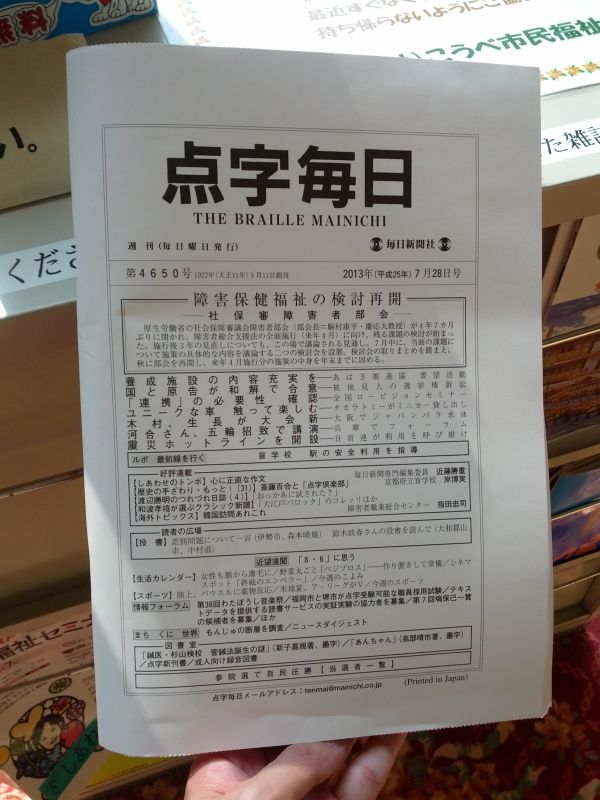 無料
最近すぐなく
持ち帰らないようにご協
こうべ市民福祉
い。
くださ
た雑誌
点字毎日
THE BRAILLE MAINICHI
週刊(毎日曜日発行)
毎日新聞社
第4650号 1922年(大正11年)5月11日創刊
2013年(平成25年)7月28日号
障害保健福祉の検討再開
社保審障害者部会
厚生労働省の社会保障審議会障害者部会(部会長=駒村康平・慶応大教授)が4年7カ月
ぶりに開かれ、障害者総合支援法の全面施行(来年4月)に向け、残る課題の検討が始まっ
た。施行後3年の見直しについても、この場で議論される見通し。7月中に、当面の課題に
ついて施策の具体的な内容を議論する二つの検討会を設置。検討会の取りまとめを踏まえ、
秋に部会を再開し、来年4月施行分の施策の中身を年末までに固める。
養成施設の内容充実を―あはき推進協 要望活動
国と原告が和解で合意―被後見人の選挙権訴訟
「連携」の必要性 確認―全国ロービジョンセミナー
ユニークな車 触って楽しむ―タカラトミーがミニカー貸し出し
木村、生長が大会新―大阪でジャパンパラ水泳
河合さん、五輪招致で講演―兵庫でフォーラム
震災ホットラインを開設―日盲連が利用を呼び掛け
ルポ 最前線を行く 盲学校 駅の安全利用を指導
好評連載
【しあわせのトンボ】心に正直な作文 毎日新聞専門編集委員 近藤勝重
【歴史の手ざわり・もっと!(31)】斎藤百合と「点字倶楽部」 京都府立盲学校 岸博実
【渡辺明のつれづれ日誌(4)】「おっかあに試された?」
【和波孝禧が選ぶクラシック新譜】「大江戸バロック」のコレッリほか
【海外トピックス】韓国訪問あれこれ 障害者職業総合センター 指田忠司
読者の広場
【投 書】差別問題について一言(伊勢市、森本晴揚) 鈴木政春さんの投書を読んで(大和郡山
市、中村滋)
近望遠聞 「8・6」に思う
【生活カレンダー】女性も額から薄毛に/野菜丸ごと「ベジブロス」―作り置きして常備/シネマ
スポット「終戦のエンペラー」/今週のこよみ
【スポーツ】陸上、パウエルに薬物反応/米球宴、ア・リーグがV/今週のスポーツ
情報フォーラム 第38回わたぼうし音楽祭/福岡市と堺市が点字受験可能な職員採用試験/テキス
トデータを提供する読書サービスの実証実験の協力者を募集/第7回塙保己一賞
の候補者を募集/ほか
まち くに 世界 もんじゅの断層を調査/ニュースダイジェスト
図書室
「鍼医・杉山検校 菅鍼法誕生の謎」(新子嘉規著、墨字)/「あんちゃん」(高部晴市著、墨字)
/点字新刊書/成人向け録音図書
参院選で自民圧勝【当選者一覧】
点字毎日メールアドレス:tenmai@mainichi.co.jp
(Printed in Japan)
福祉セミナ
しあわ